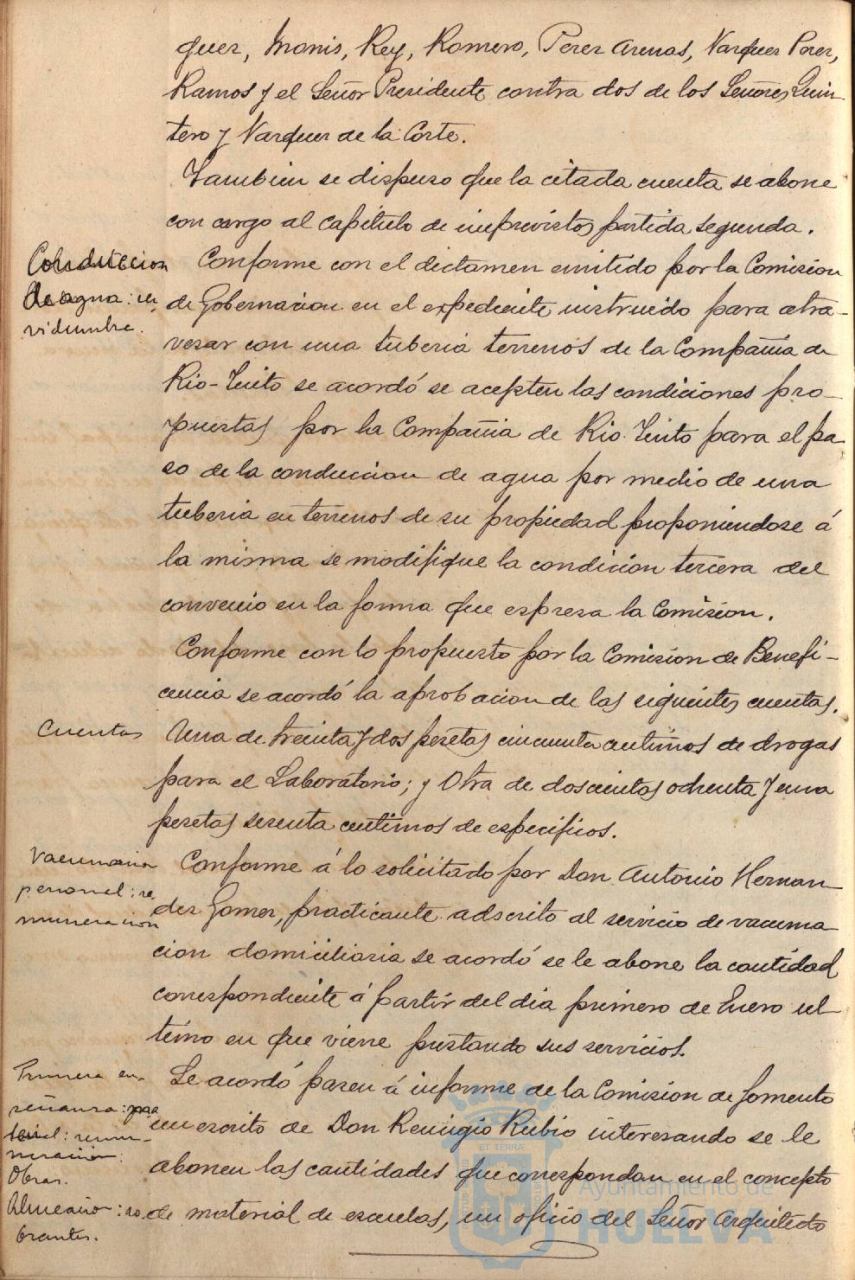 quer, Monis, Rey, Romero, Perez Arenas, Vazquez Perez,
Ramos y el Señor Presidente contra dos de los Señores Quin-
tero y Vazquez de la Corte.
Tambien se dispuso que la citada cuenta se abone
con cargo al capítulo de imprevistos partida segunda.
Conduccion
de agua: ser
vidumbre.
Conforme con el dictamen emitido por la Comision
de Gobernacion en el expediente instruido para atra-
vesar con una tuberia terrenos de la Compañia de
Rio-Tinto se acordó se acepten las condiciones pro-
puestas por la Compañia de Rio Tinto para el pa-
so de la conduccion de agua por medio de una
tuberia en terrenos de su propiedad proponiendose á
la misma se modifique la condicion tercera del
convenio en la forma que espresa la Comision.
Conforme con lo propuesto por la Comision de Benefi-
cencia se acordó la aprobacion de las siguientes cuentas.
Cuentas
Una de treinta y dos pesetas cincuenta centimos de drogas
para el Laboratorio; y Otra de doscientas ochenta y una
pesetas sesenta centimos de especificos.
personal: re
muneracion
Conforme á lo solicitado por Don Antonio Hernan-
dez Gomez, practicante adscrito al servicio de vacuna
cion domiciliaria se acordó se le abone la cantidad
correspondiente á partir del dia primero de Enero ul-
timo en que viene prestando sus servicios.
Primera en
señanza:
remu-
neración:
Obras.
brantes.
Se acordó pasen á informe de la Comision de Fomento
un escrito de Don Remigio Rubio interesando se le
abonen las cantidades que correspondan en el concepto
de material de escuelas, un oficio del Señor Arquitecto
Ayuntamiento de
HUELVA